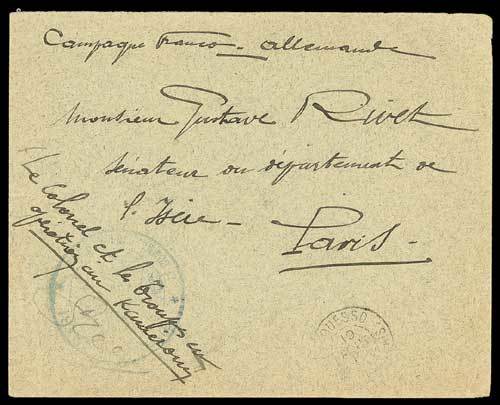 Campagne Franco-allemande
Monsieur Gustave Rivet
Sénateur du département de
l'Isère -
Paris -
(Le Colonel et les troupes en
opération au Kameroun
OUESSO